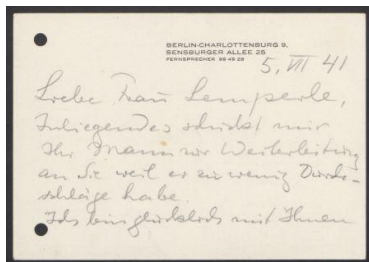 BERLIN-CHARLOTTENBURG 9,
SENSBURGER ALLEE 26
FERNSPRECHER 99 49 28
5. VII 41
Liebe Frau Lemperle,
Inliegendes schickt mir
Ihr Mann zur Weiterleitung
an Sie weil er zu wenig Durch-
schläge habe.
Ich bin glücklich mit Ihnen